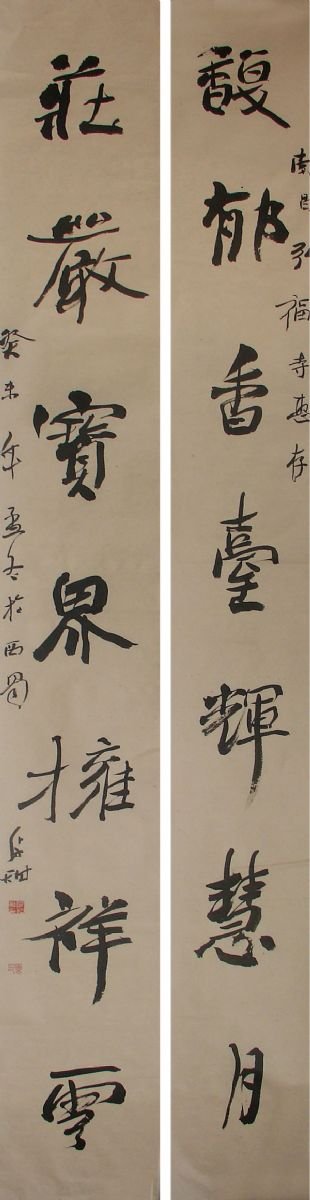 南昌弘福寺惠存
馥郁香臺輝慧月
莊嚴寶界擁祥雲
癸未年孟冬於西蜀